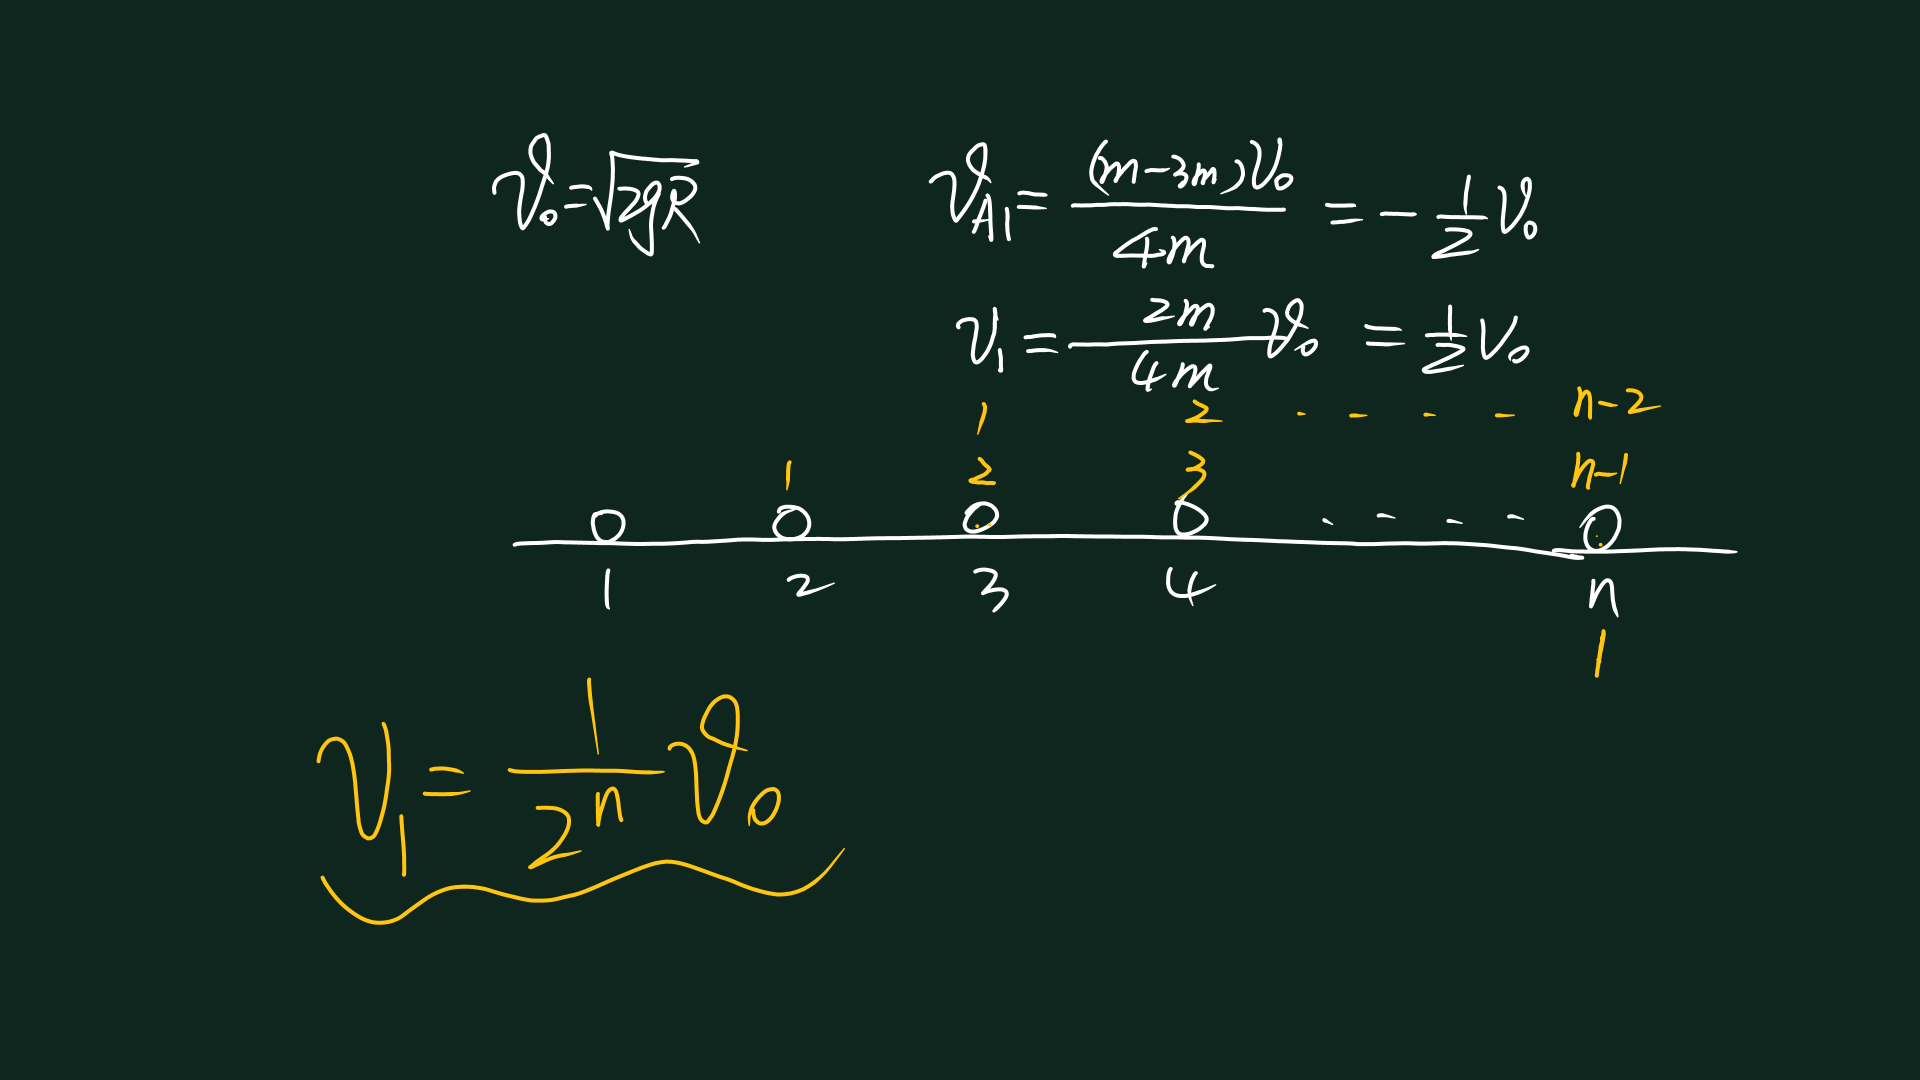 v₀=√2gR
v_A1 = (m-3m)v₀ / 4m = - 1/2 v₀
v₁ = 2m/4m v₀ = 1/2 v₀
1 2 · - - - n-2
1 2 3 n-1
0 0 0 0 · - - - 0
1 2 3 4 n
1
v₁ = 1/2ⁿ v₀